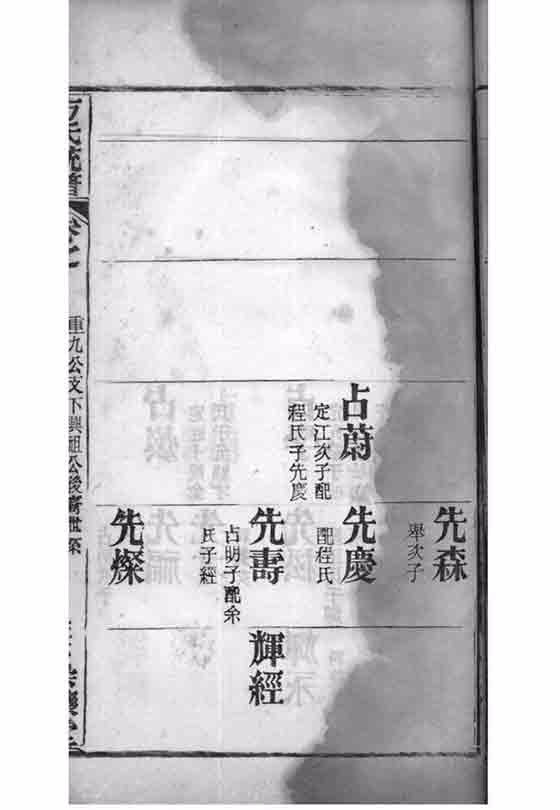 占蔚
定江次子配
程氏子先慶
先森
舉次子
先慶
配程氏
先壽
占明子配余
氏子經
先燦
輝經
方氏統譜
重九公支下興祖公後